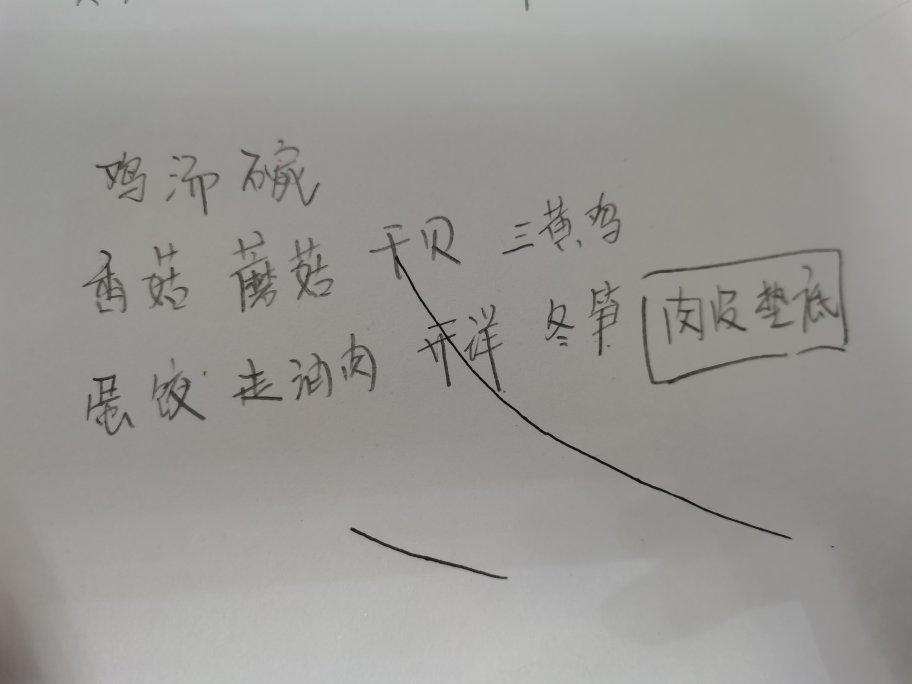 鸡汤碗
香菇 蘑菇 干贝 三黄鸡
蛋饺 走油肉 开洋 冬笋 肉皮垫底